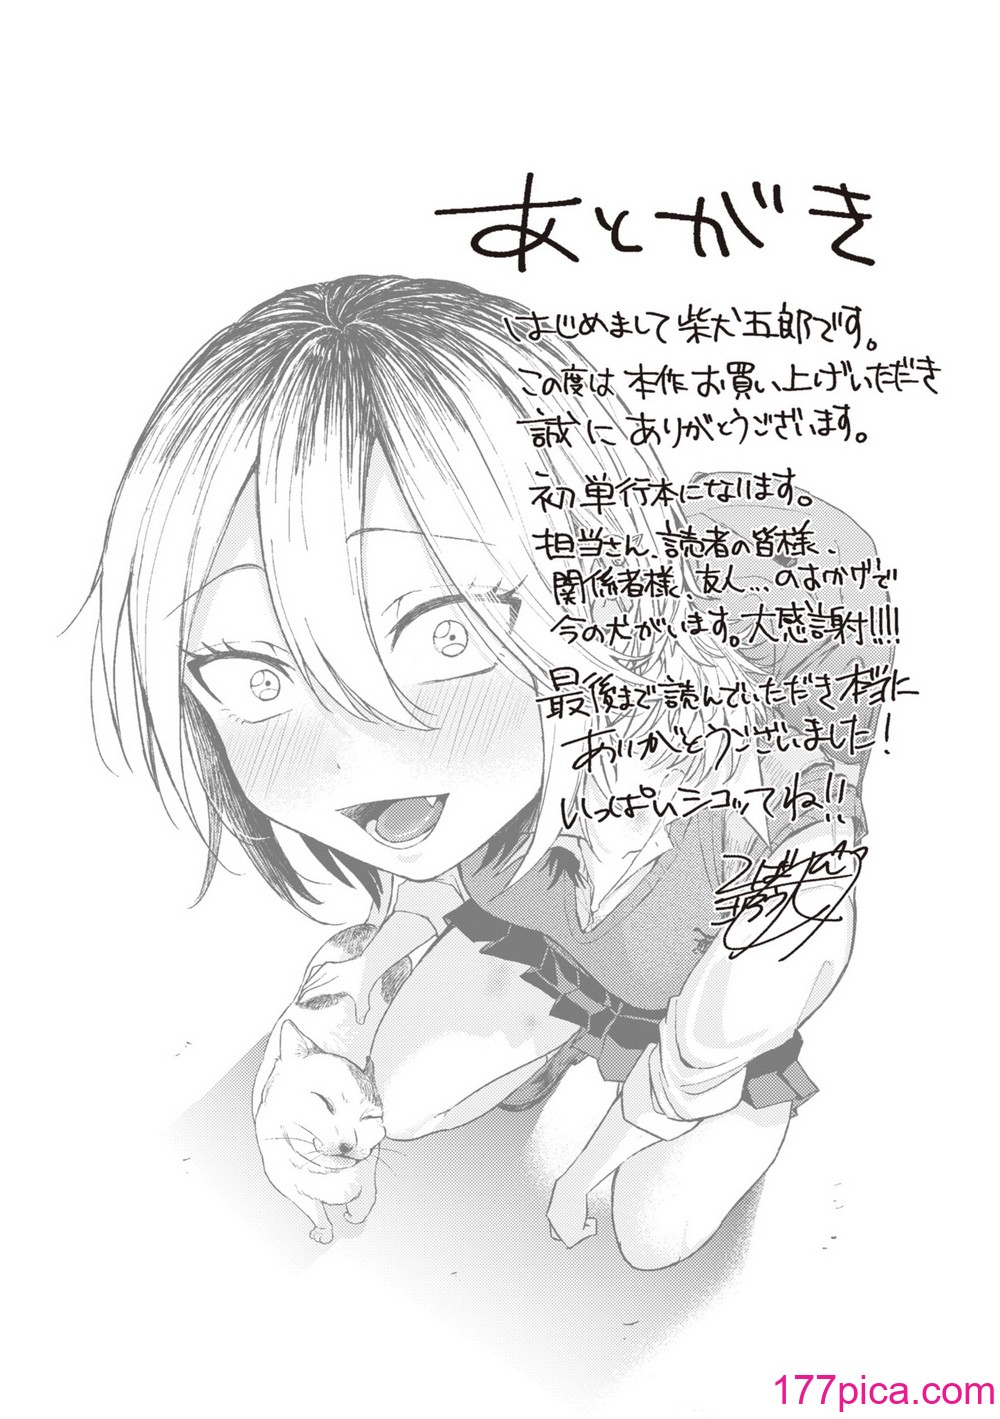 あとがき
はじめまして柴犬五郎です。
この度は本作お買い上げいただき
誠にありがとうございます。
初単行本になります。
担当さん、読者の皆様、
関係者様、友人...のおかげで
今の犬がいます。大感謝!!!!
最後まで読んでいただき本当に
ありがとうございました!
いっぱいシコッてね!!
177pica.com